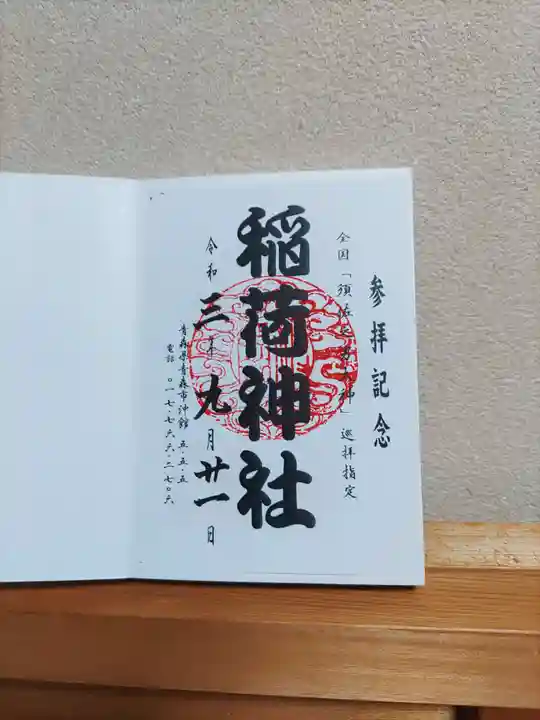 参拝記念
全国「須佐之男大神」巡拝指定
稲荷神社
令和三年九月廿一日
青森県青森市沖館五・五・五
電話〇一七・七六六・三七〇六